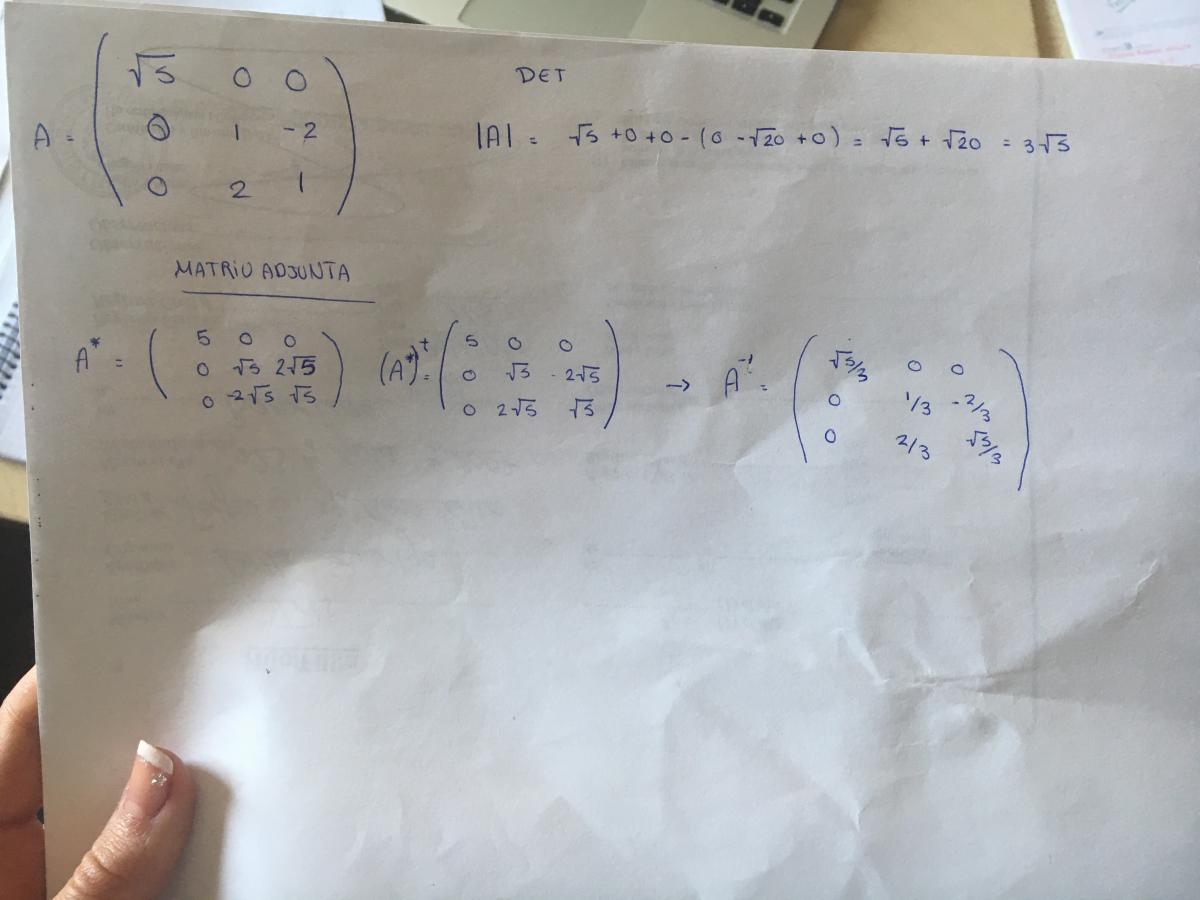 A = ( √5 0 0
0 1 -2
0 2 1 )
DET
|A| = √5 + 0 + 0 - (0 - √20 + 0) = √5 + √20 = 3√5
MATRIU ADJUNTA
A* = ( 5 0 0
0 √5 2√5
0 -2√5 √5 )
(A*)t = ( 5 0 0
0 √5 -2√5
0 2√5 √5 )
→ A-1 = ( √5/3 0 0
0 1/3 -2/3
0 2/3 √5/3 )